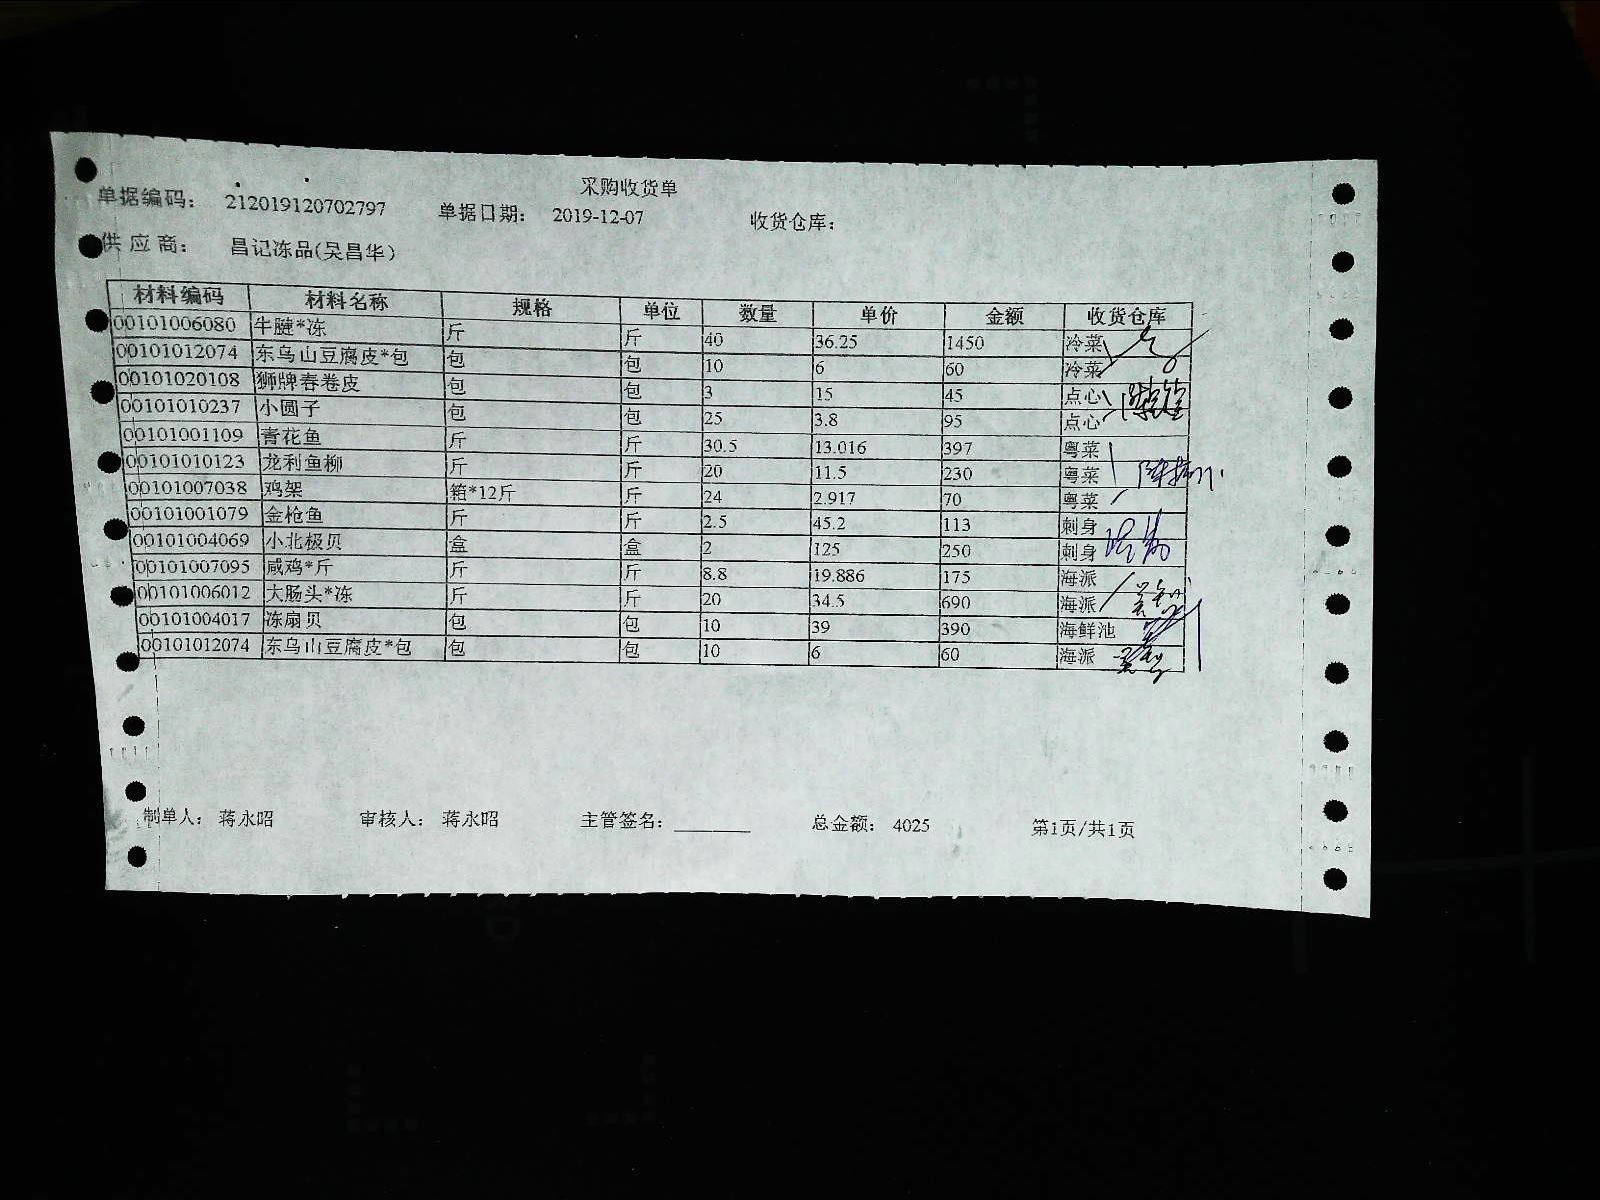 采购收货单
单据编码: 212019120702797 单据日期: 2019-12-07 收货仓库:
供应商: 昌记冻品(吴昌华)
材料编码 材料名称 规格 单位 数量 单价 金额 收货仓库
00101006080 牛腱*冻 斤 斤 40 36.25 1450 冷菜
00101012074 东乌山豆腐皮*包 包 包 10 6 60 冷菜
00101020108 狮牌春卷皮 包 包 3 15 45 点心
00101010237 小圆子 包 包 25 3.8 95 点心
00101001109 青花鱼 斤 斤 30.5 13.016 397 粤菜
00101010123 龙利鱼柳 斤 斤 20 11.5 230 粤菜
00101007038 鸡架 箱*12斤 斤 24 2.917 70 粤菜
00101001079 金枪鱼 斤 斤 2.5 45.2 113 刺身
00101004069 小北极贝 盒 盒 2 125 250 刺身
00101007095 咸鸡*斤 斤 斤 8.8 19.886 175 海派
00101006012 大肠头*冻 斤 斤 20 34.5 690 海派
00101004017 冻扇贝 包 包 10 39 390 海鲜池
00101012074 东乌山豆腐皮*包 包 包 10 6 60 海派
制单人: 蒋永昭 审核人: 蒋永昭 主管签名: 总金额: 4025 第1页/共1页